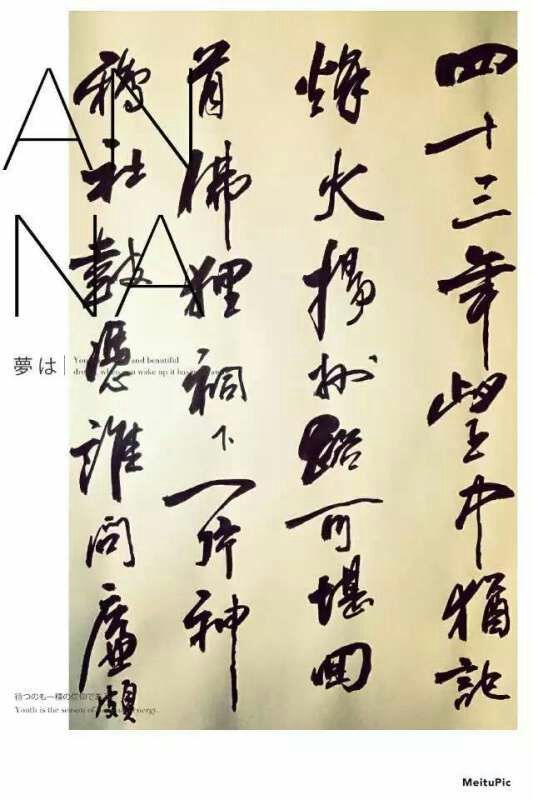 四十三年望中猶記
烽火揚州路可堪回
首佛狸祠下一片神
鴉社鼓憑誰問廉頗
AN
NA
夢は
You and beautiful
wake up it has
待つのも一種の信仰であ
Youth is the season of energy.
MeituPic